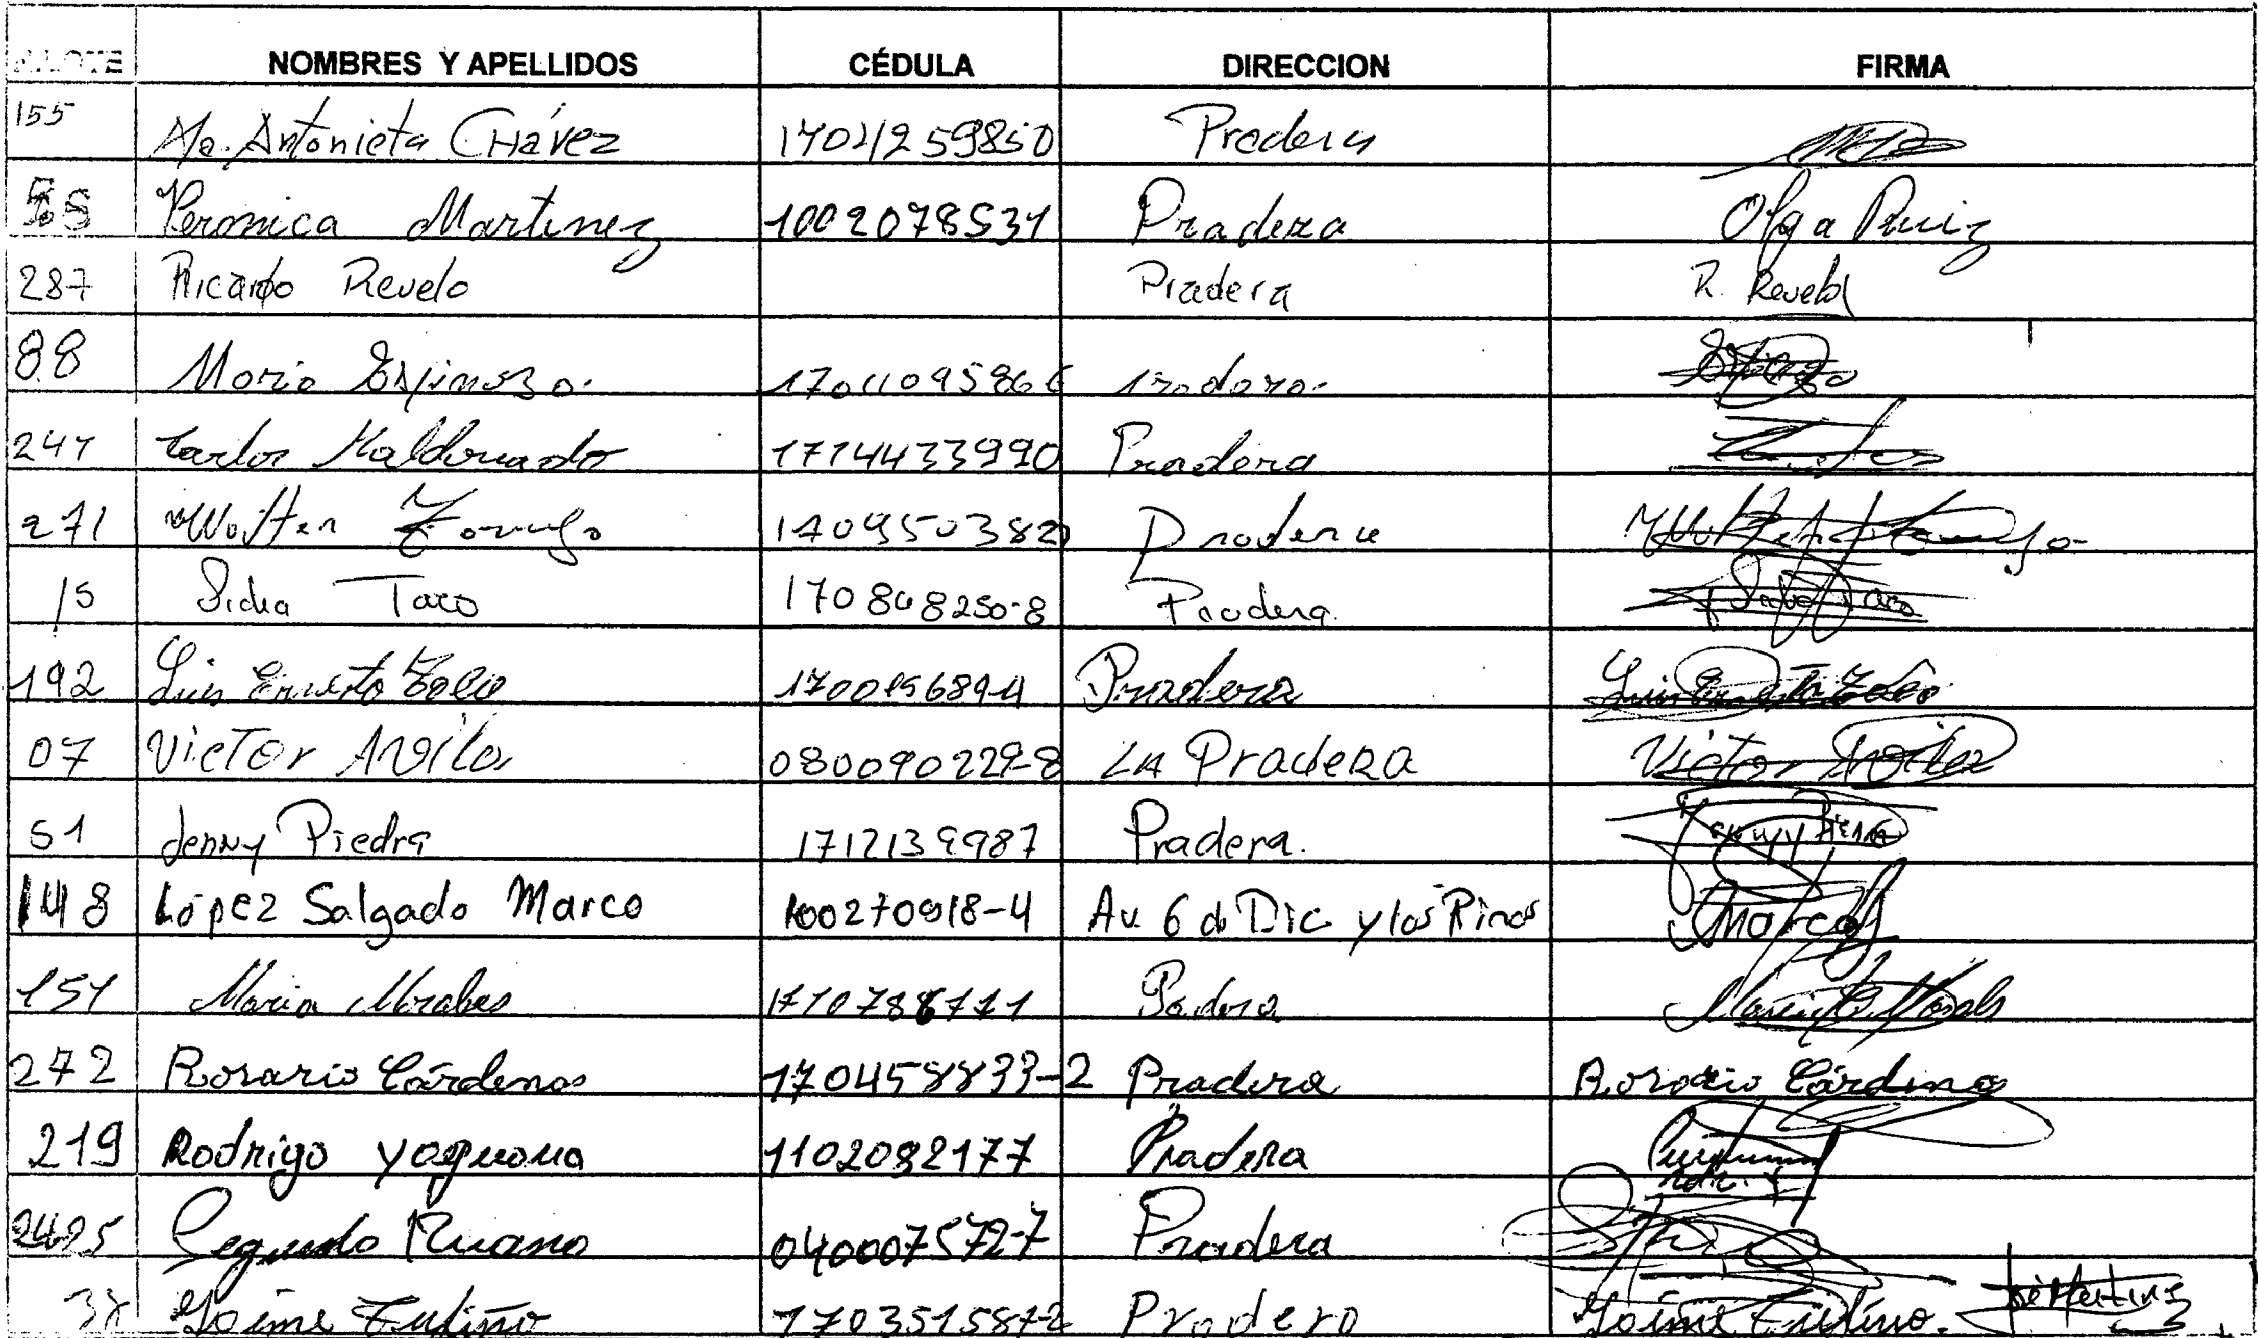 NOMBRES Y APELLIDOS CÉDULA DIRECCION FIRMA
155 Ma. Antonieta CHávez 1704259850 Pradera
Veronica Martinez 1002078531 Pradera Olga Ruiz
287 Ricardo Revelo Pradera R. Revelo
88 Mario Espinoza. Pradera.
247 Carlos Maldonado 1714433990 Pradera
271 Wolter 1709503820 Pradera
15 Taco 170848250-8 Pradera.
192 Luis Ernesto Pradera Luis Ernesto
07 Victor Avila 080090229-8 LA PradeRa Victor Avila
51 Jenny Piedra 1712139987 Pradera. Jenny Piedra
148 López Salgado Marco 100270918-4 Av. 6 de Dic y los Pinos Marco
151 Maria Morales Pradera Maria Morales
272 Rosario Cárdenas 170458833-2 Pradera Rosario Cárdenas
219 Rodrigo Yaguana 1102082177 Pradera
Segundo Ruano 040007572-7 Pradera
Jaime Tutiño 170351587-2 Pradera Jaime Tutiño.